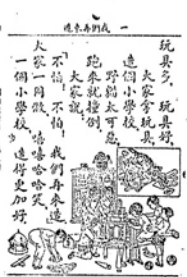 一 我們再來造
玩具多，玩具好，
大家拿玩具，
造個小學校。
野貓太可惡，
跑來就撞倒。
大家說：
「不怕！不怕！我們再來造。」
大家一同做，嘻嘻哈哈笑，
一個小學校，造得更加好。